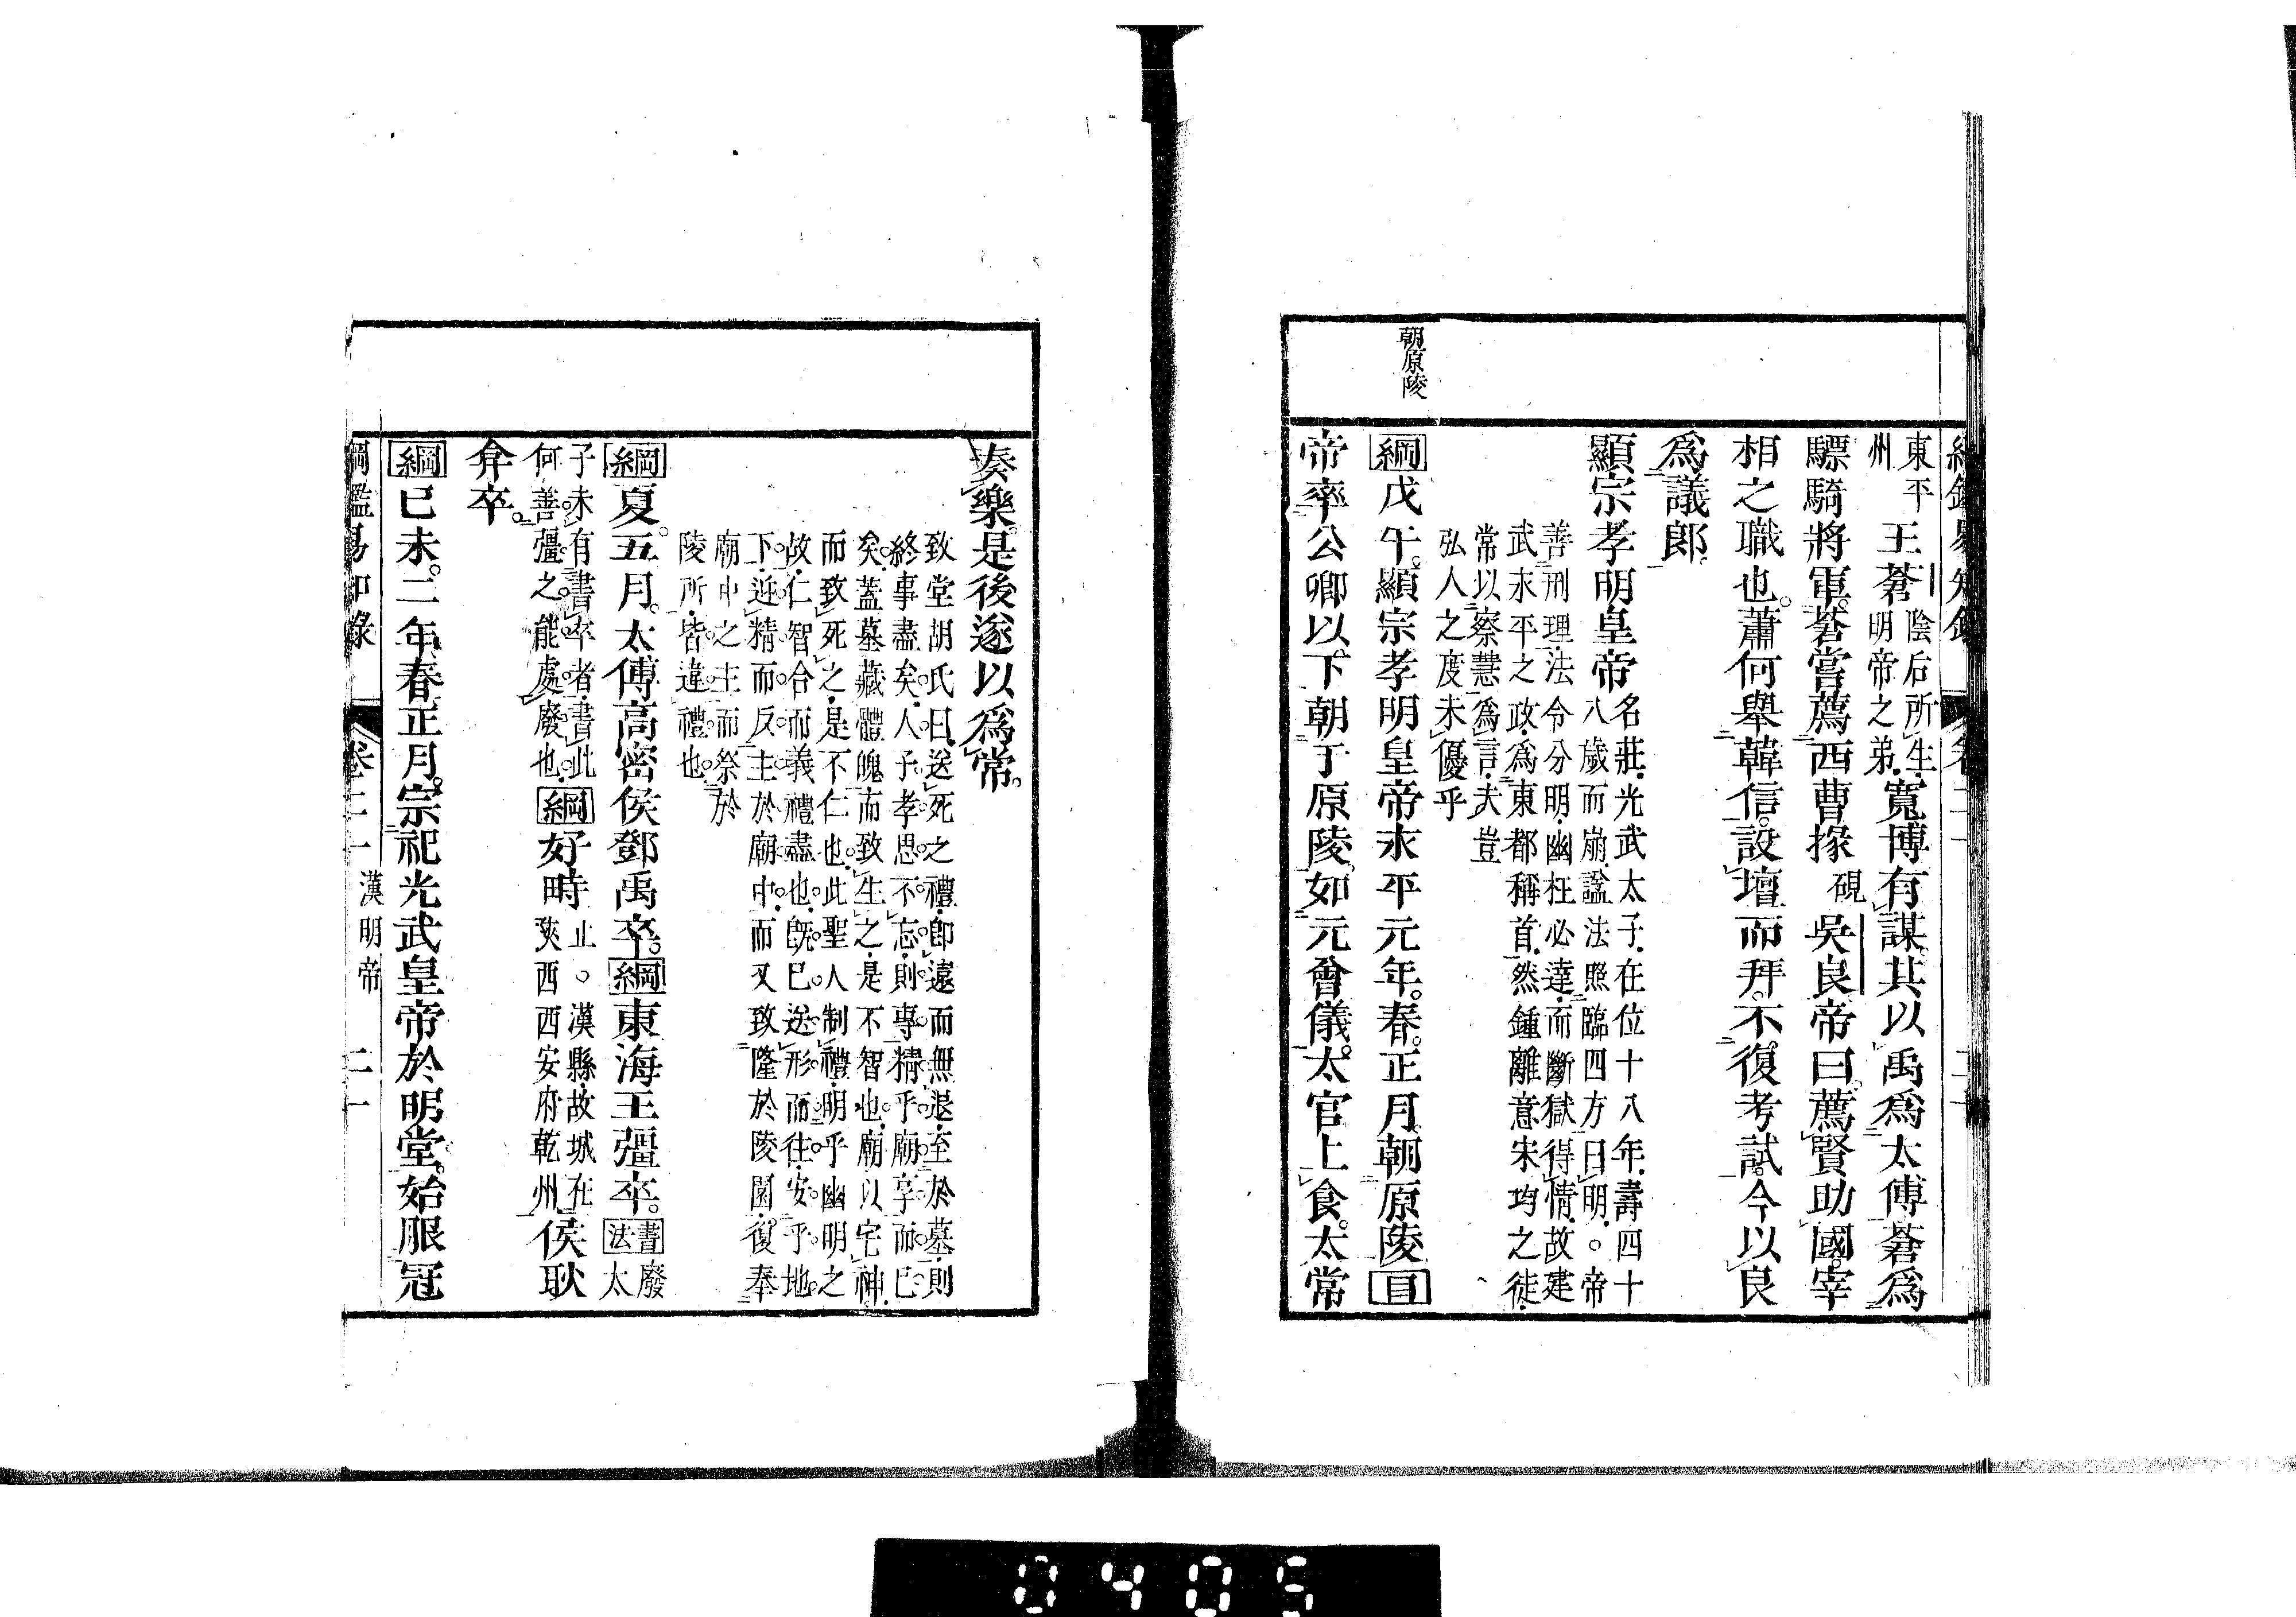 朝原陵
東平
州
王蒼
陰后所生
明帝之弟
寬博有謀。其以禹爲太傅。蒼爲
驃騎將軍。蒼嘗薦西曹掾
硯
吳良。帝曰。薦賢助國。宰
相之職也。蕭何舉韓信。設壇而拜。不復考試。今以良
爲議郎。
顯宗孝明皇帝
名莊。光武太子。在位十八年。壽四十
八歲而崩。諡法照臨四方曰明。○帝
善刑理。法令分明。幽枉必達。而斷獄得情。故建
武永平之政。爲東都稱首。然鍾離意宋均之徒。
常以察慧爲言。夫豈
弘人之度未優乎
綱戊午。顯宗孝明皇帝永平元年。春。正月。朝原陵目
帝率公卿以下朝于原陵。如元會儀。太官上食。太常
奏樂。是後遂以爲常。
致堂胡氏曰。送死之禮。卽遠而無退。至於墓。則
終事盡矣。人子孝思不忘。則專精乎廟享而已
矣。蓋墓藏體魄。而致生之。是不智也。廟以宅神。
而致死之。是不仁也。此聖人制禮。明乎幽明之
故。仁智合而義禮盡也。旣已送形而往。安乎地
下。迎精而反。主於廟中。而又致隆於陵園。復奉
廟中之主。而祭於
陵所。皆違禮也。
綱夏。五月。太傅高密侯鄧禹卒。綱東海王彊卒。
書法
廢太
子未有書卒者。書此
何。善彊之能處廢也。
綱好畤
止。○漢縣。故城在
陝西西安府乾州。
侯耿
弇卒。
綱已未。二年。春正月。宗祀光武皇帝於明堂。始服冠
綱鑑易知錄
卷二十
漢明帝